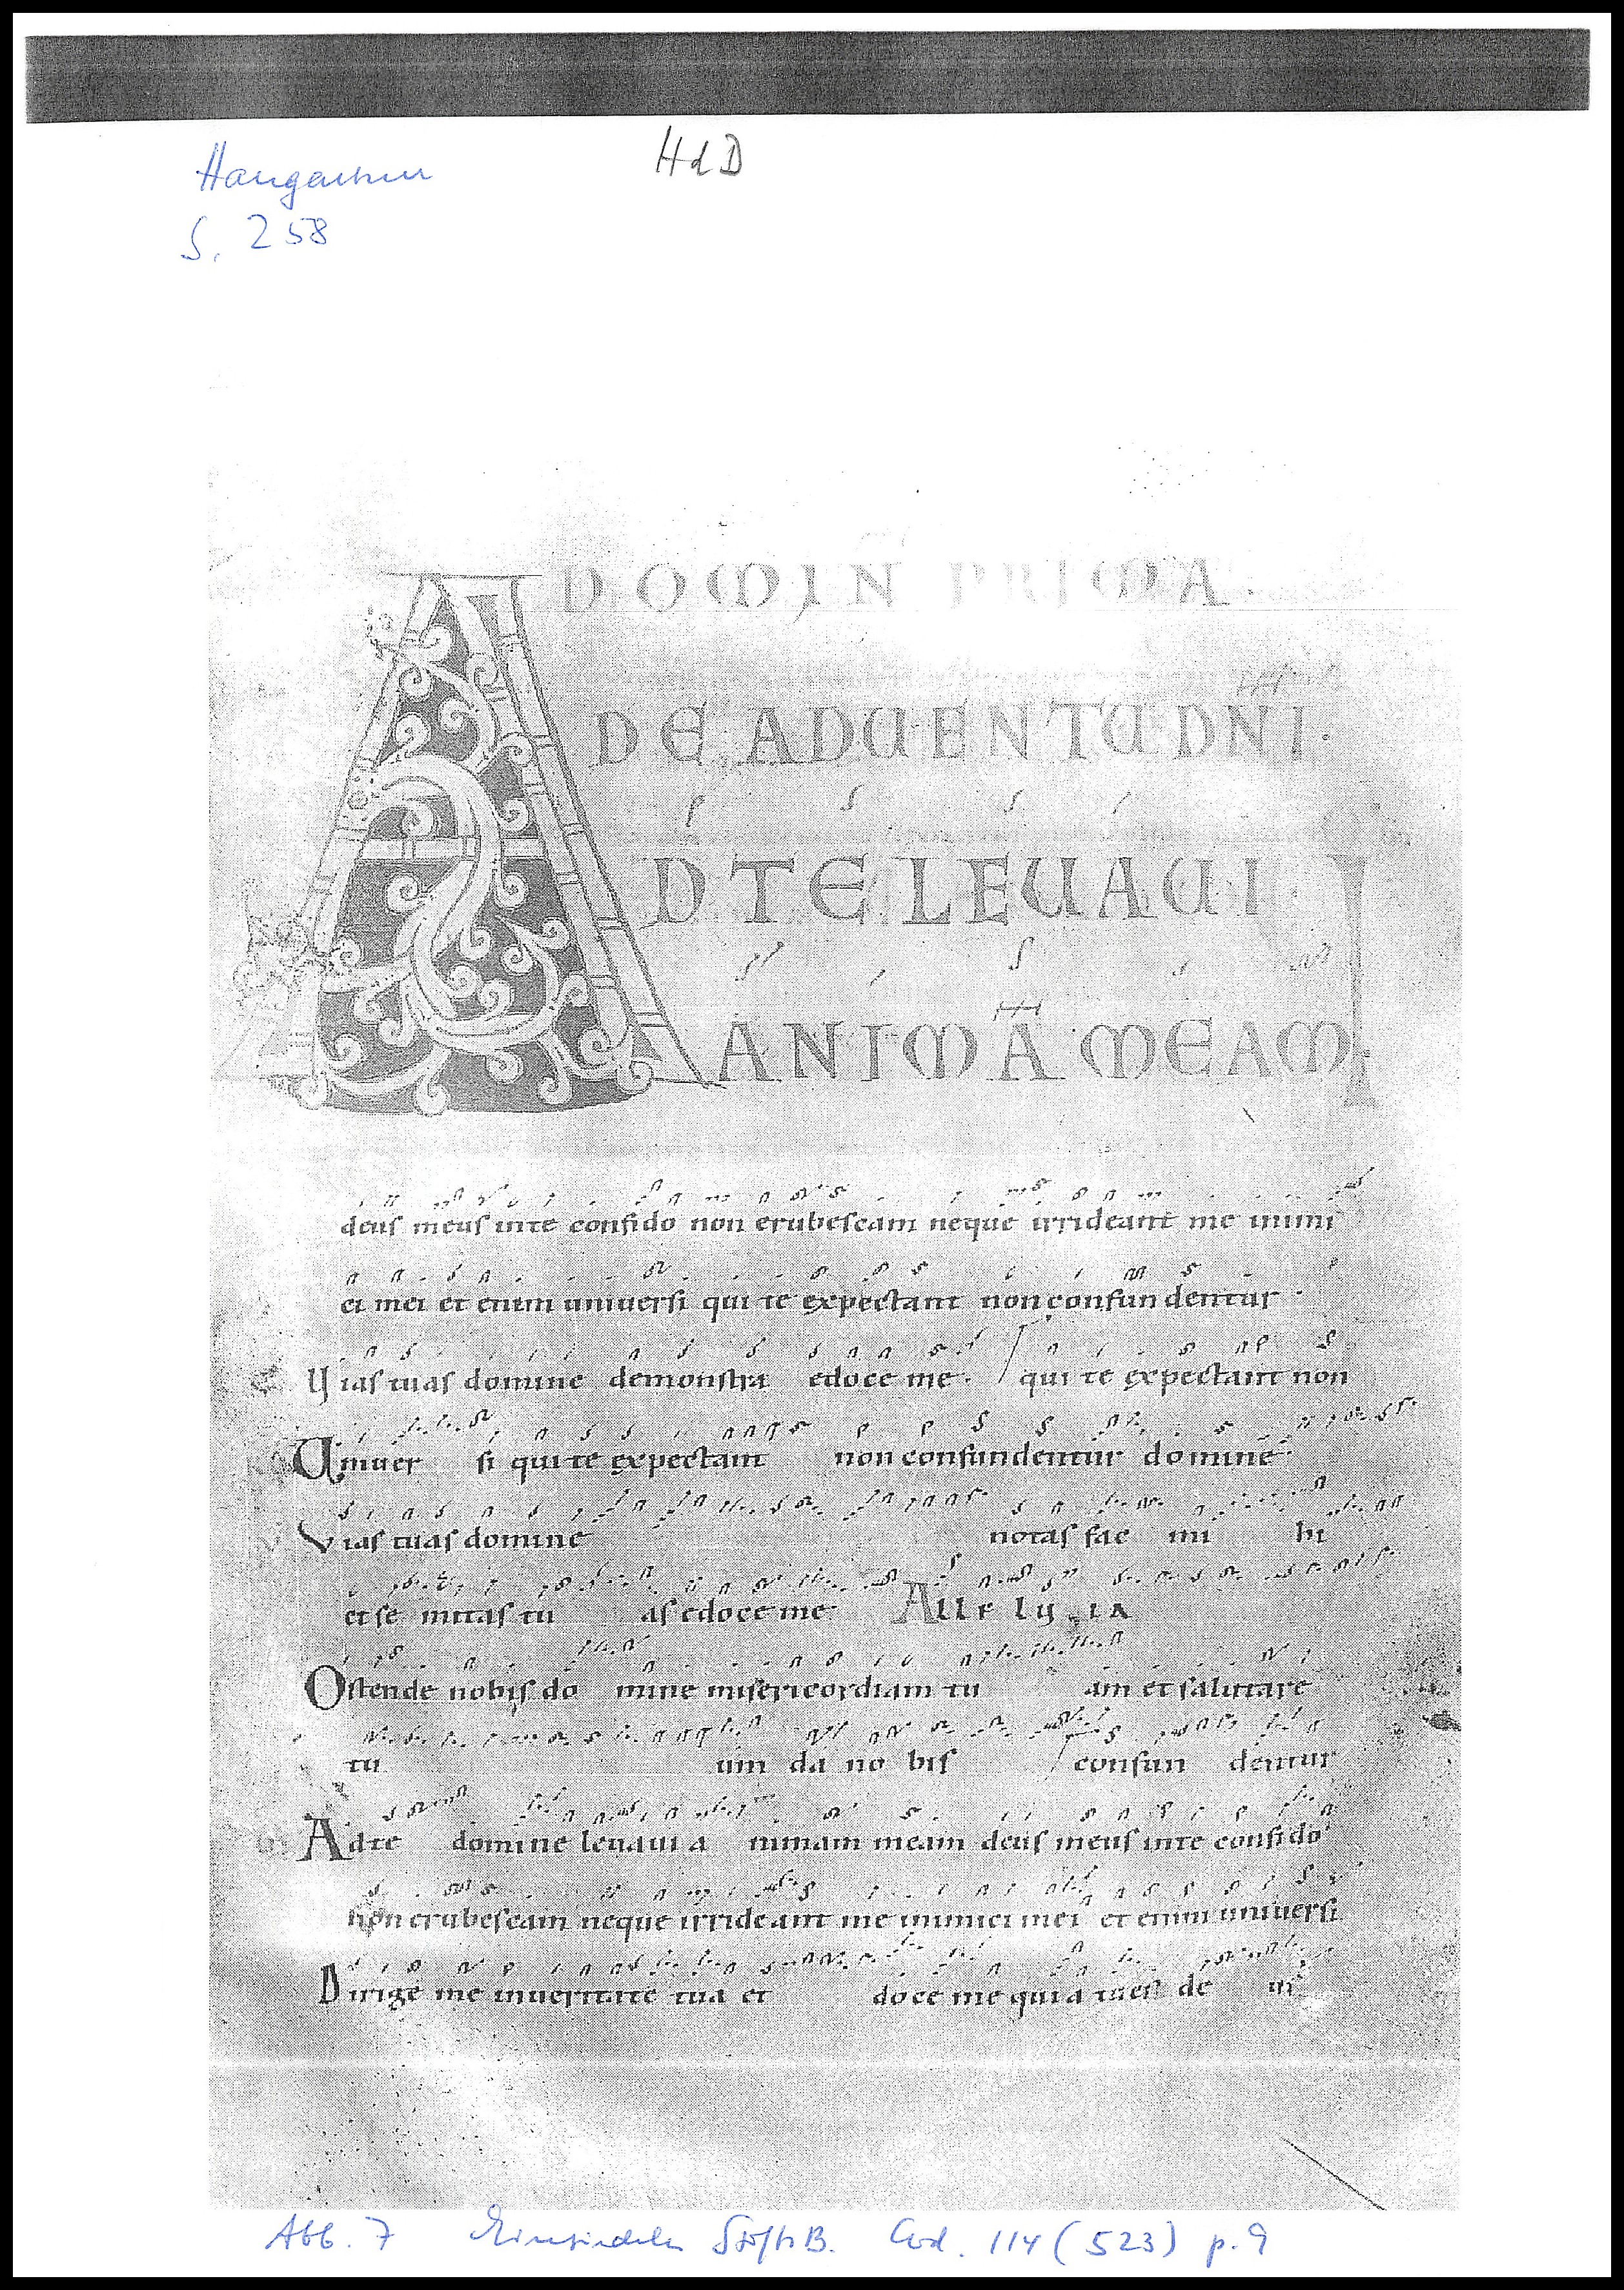 HdD
S. 258
DOMIN PRIMA
DE ADUENTU DNI.
AD TE LEUAUI
ANIMA MEAM
deus meus inte confido non erubescam neque irrideant me inimi
ci mei et enim uniuersi qui te expectant non confundentur
Vias tuas domine demonstra edoce me. qui te expectant non
Uniuer si qui te expectant non confundentur domine
Vias tuas domine notas fac mi hi
et se mitas tu as edoce me Alle lu ia
Ostende nobis do mine misericordiam tu am et salutare
tu um da no bis confun dentur
Adte domine leuaui a nimam meam deus meus inte confido
non erubescam neque irrideant me inimici mei et enim uniuersi
Dirige me inueritate tua et doce me quia tu es de us
Abb. 7 Einsiedeln StiftsB. Cod. 114 (523) p. 9